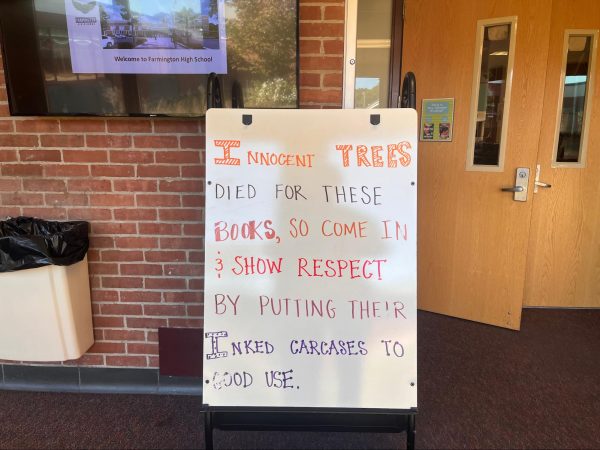 FARMINGTON
Welcome to Farmington High School
INNOCENT TREES
DIED FOR THESE
BOOKS, SO COME IN
& SHOW RESPECT
BY PUTTING THEIR
INKED CARCASES TO
GOOD USE.